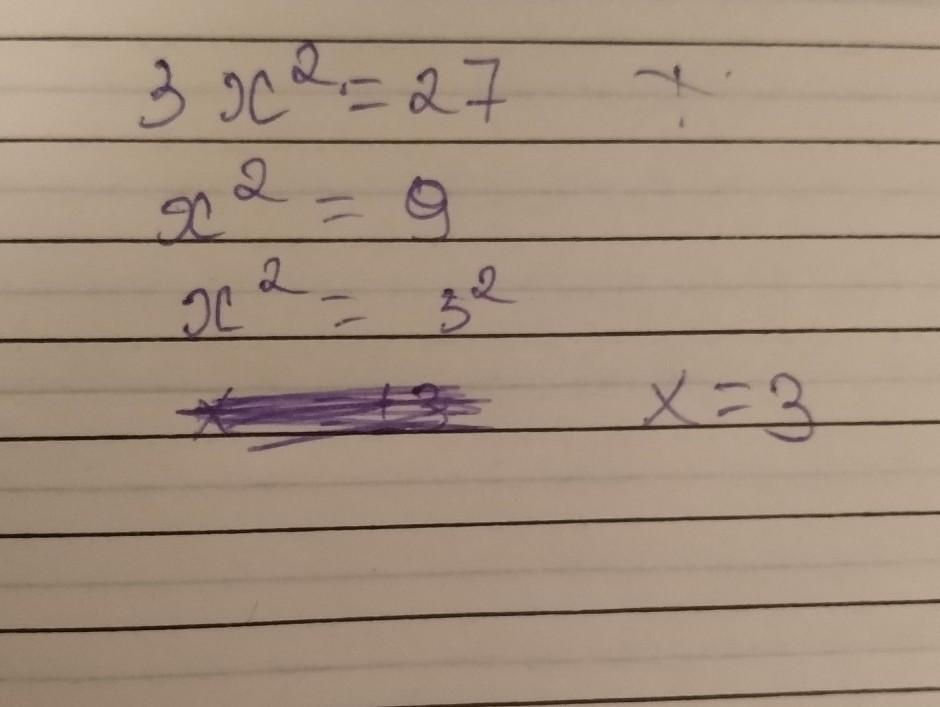 3 x² = 27
x² = 9
x² = 3²
x = 3